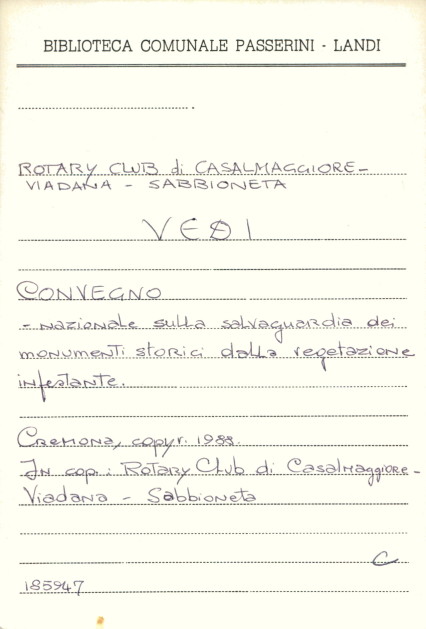 BIBLIOTECA COMUNALE PASSERINI - LANDI
ROTARY CLUB di CASALMAGGIORE-
VIADANA - SABBIONETA
VEDI
CONVEGNO
- nazionale sulla salvaguardia dei
monumenti storici dalla vegetazione
infestante.
Cremona, copyr. 1988.
In cop.: Rotary Club di Casalmaggiore-
Viadana - Sabbioneta
C
185947